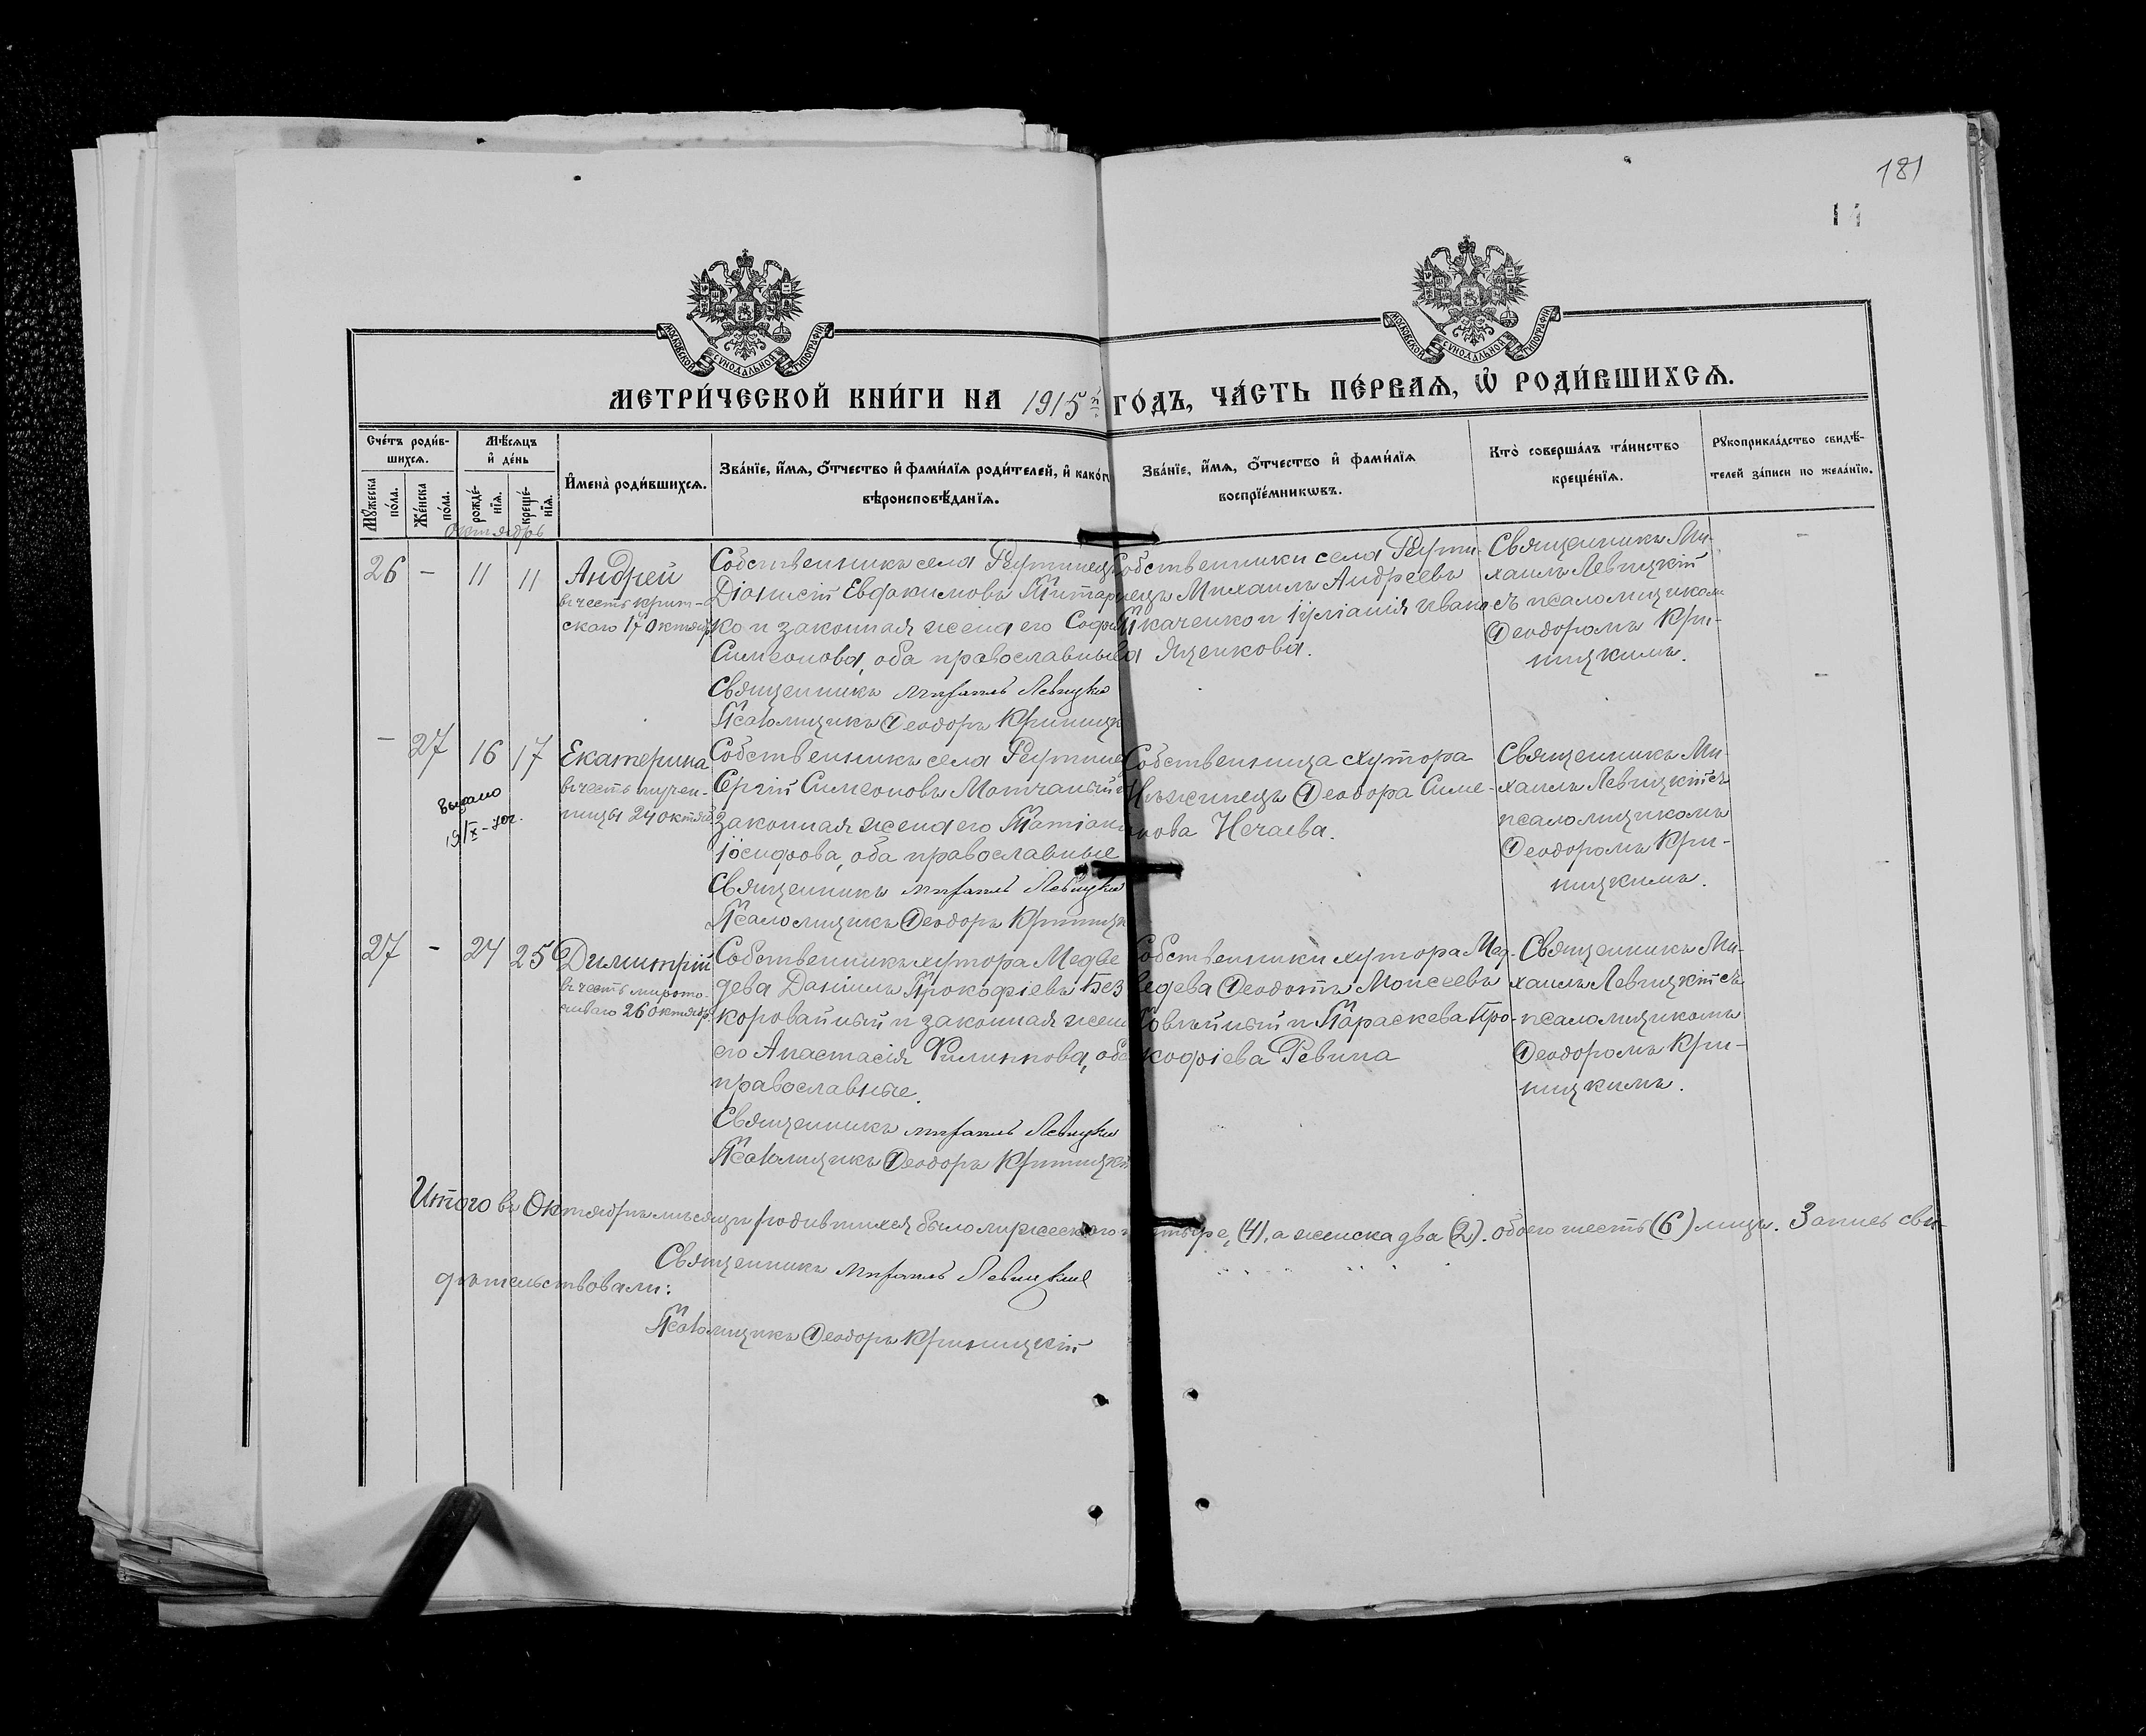 181
МОСКОВСКОЙ СУНОДАЛЬНОЙ ТИПОГРАФІИ
МОСКОВСКОЙ СУНОДАЛЬНОЙ ТИПОГРАФІИ
МЕТРИ́ЧЕСКОЙ КНИ́ГИ НА 1915й ГО́ДЪ, ЧА́СТЬ ПЕ́РВАЯ, Ѡ РОДИ́ВШИХСЯ.
Сче́тъ роди́в-
шихся.
Мѣ́сяцъ
и де́нь
Му́жеска по́ла.
Же́нска по́ла.
рожде́-
нія.
креще́-
нія.
Имена̀ роди́вшихся.
Зва́ніе, и́мя, о́тчество и фами́лія роди́телей, и како́г
вѣроисповѣ́данія.
Зва́ніе, и́мя, о́тчество и фами́лія
воспріе́мниковъ.
Кто̀ соверша́лъ та́инство
креще́нія.
Рукоприкла́дство свидѣ́-
телей за́писи по жела́нію.
Октябрь
26 - 11 11
Андрей
въ честь крит-
скаго 17 Октяб
Собственникъ села
Діонисій Евфакимовъ Титар
ко и законная жена его Софі
Симеонова, оба православные
Священникъ Михаилъ Левицкій
Псаломщикъ Ѳеодоръ Криницк
Собственники села
нецъ Михаилъ Андреевъ
Ткаченко и Іуліанія Ивано
ва Яценкова.
Священникъ Ми-
хаилъ Левицкій
съ псаломщикомъ
Ѳеодоромъ Кри-
ницкимъ.
- 27 16 17
Выдано
Екатерина
въ честь мучен-
ницы 24 октяб.
Собственникъ села
Сергій Симеоновъ Мотчаный и
законная жена его Татіана
Іосифова, оба православные
Священникъ Михаилъ Левицкій
Псаломщикъ Ѳеодоръ Криницк
Собственница хутора
Нѣжинецъ Ѳеодора Симе-
онова Нечаева.
Священникъ Ми-
хаилъ Левицкій съ
псаломщикомъ
Ѳеодоромъ Кри-
ницкимъ.
27 - 24 25
Димитрій
въ честь мирото-
чиваго 26 Октябр.
Собственникъ хутора Медве
дева Даніилъ Прокофіевъ Без
коровайный и законная жена
его Анастасія Филиппова, оба
православные.
Священникъ Михаилъ Левицкій
Псаломщикъ Ѳеодоръ Криницкі
Собственники хутора Мед-
ведева Ѳеодотъ Моисеевъ
и Параскева Про-
кофіева Ревина
Священникъ Ми-
хаилъ Левицкій съ
псаломщикомъ
Ѳеодоромъ Кри-
ницкимъ.
Итого въ Октябрѣ мѣсяцѣ родившихся было мужескаго четыре (4), а женска два (2). обоего шесть (6) лицъ. Запись сви-
дѣтельствовали:
Священникъ Михаилъ Левицкій
Псаломщикъ Ѳеодоръ Криницкій